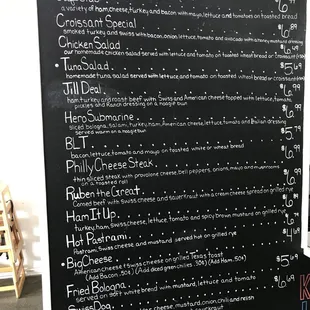 a variety of ham, turkey, and bacon with mayo, lettuce and tomatoes on toasted bread
Croissant Special
smoked turkey and swiss with bacon, onion, lettuce, tomato and avocado with a honey mustard dressing
Chicken Salad
our homemade chicken salad served with lettuce and tomato on toasted wheat bread or croissant
• Tuna Salad $5.69
homemade tuna salad served with lettuce and tomato on toasted wheat bread or croissant
Jill Deal $6.99
ham, turkey, and roast beef with Swiss and American cheese topped with lettuce, tomato,
pickles and Ranch dressing on a hoagie bun
Hero Submarine
sliced bologna, salami, turkey, ham, American cheese, lettuce, tomato and Italian dressing
served warm on a hoagie bun
BLT $5.79
bacon, lettuce, tomato and mayo on toasted white or wheat bread
Philly Cheese Steak
thin sliced steak with provolone cheese, bell peppers, onions, mayo and
on a toasted roll
Ruben the Great $6.99
Corned beef, Swiss cheese and sauerkraut with a cream cheese spread on grilled rye
Ham It Up
turkey, ham, Swiss cheese, lettuce, tomato and spicy brown mustard on grilled rye
Hot Pastrami
Pastrami, Swiss cheese and mustard served hot on grilled rye
• Big Cheese $4.69
American cheese & Swiss cheese on grilled Texas toast
(Add green chilies .50¢) (Add Ham .50¢)
Fried Bologna $4.69
served on soft white bread with mustard, lettuce and tomato
Swiss Dog
Swiss cheese, mustard, onion, chili and relish